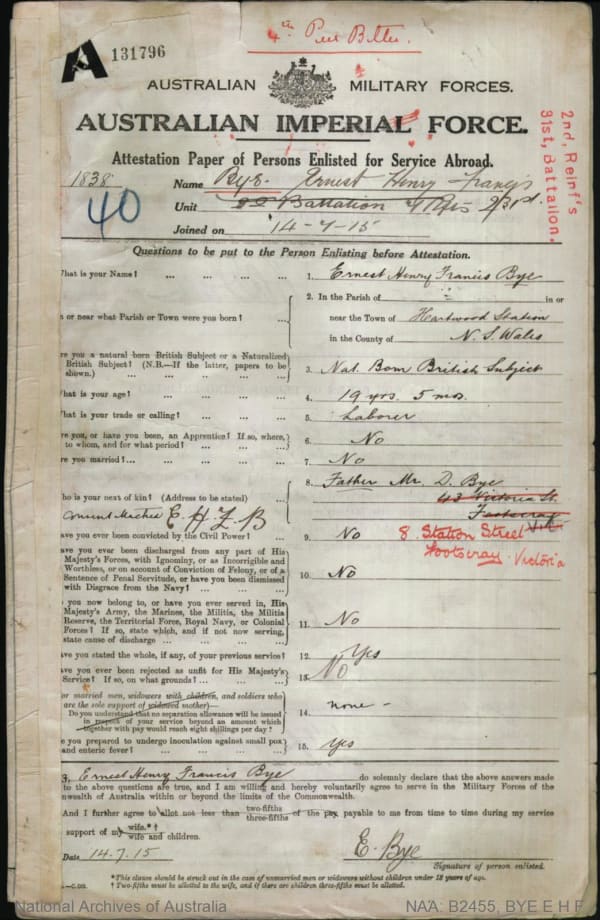 4th Pnr Battn.
A 131796
AUSTRALIAN MILITARY FORCES.
AUSTRALIAN IMPERIAL FORCE.
2nd, Reinf's
31st, Battalion,
Attestation Paper of Persons Enlisted for Service Abroad.
1838 Name Bye. Ernest Henry Francis
40 Unit Battalion
Joined on 14-7-15
Questions to be put to the Person Enlisting before Attestation.
hat is your Name? ... ... ... ... 1. Ernest Henry Francis Bye
2. In the Parish of in or
n or near what Parish or Town were you born? ... near the Town of Hartwood Station
in the County of N. S. Wales
re you a natural born British Subject or a Naturalized
British Subject? (N.B.—If the latter, papers to be
shown.) ... ... ... ... ... 3. Nat. Born British Subject
hat is your age? ... ... ... ... 4. 19 yrs. 5 mos.
hat is your trade or calling? ... ... ... 5. Laborer
re you, or have you been, an Apprentice? If so, where,
to whom, and for what period? ... ... ... 6. No
re you married? ... ... ... ... ... 7. No
8. Father Mr. D. Bye
ho is your next of kin? (Address to be stated) ... 43 Victoria St.
Footscray Vic
E H F B
ave you ever been convicted by the Civil Power? ... 9. No 8. Station Street
Footscray. Victoria
ave you ever been discharged from any part of His
Majesty's Forces, with Ignominy, or as Incorrigible and
Worthless, or on account of Conviction of Felony, or of a
Sentence of Penal Servitude, or have you been dismissed
with Disgrace from the Navy? ... ... ... 10. No
you now belong to, or have you ever served in, His
Majesty's Army, the Marines, the Militia, the Militia
Reserve, the Territorial Force, Royal Navy, or Colonial
Forces? If so, state which, and if not now serving,
state cause of discharge ... ... ... ... 11. No
ave you stated the whole, if any, of your previous service? 12. Yes
ave you ever been rejected as unfit for His Majesty's
Service? If so, on what grounds? ... ... ... 13. No
or married men, widowers with children, and soldiers who
are the sole support of widowed mother)—
Do you understand that no separation allowance will be issued
in respect of your service beyond an amount which
together with pay would reach eight shillings per day? 14. none -
e you prepared to undergo inoculation against small pox
and enteric fever? ... ... ... ... 15. Yes
I, Ernest Henry Francis Bye do solemnly declare that the above answers made
to the above questions are true, and I am willing and hereby voluntarily agree to serve in the Military Forces of the
nwealth of Australia within or beyond the limits of the Commonwealth.
And I further agree to allot not less than two-fifths three-fifths of the pay payable to me from time to time during my service
support of my wife.*† wife and children.
Date 14.7.15 E. Bye
Signature of person enlisted.
*This clause should be struck out in the case of unmarried men or widowers without children under 18 years of age.
† Two-fifths must be allotted to the wife, and if there are children three-fifths must be allotted.
National Archives of Australia NAA: B2455, BYE E H F